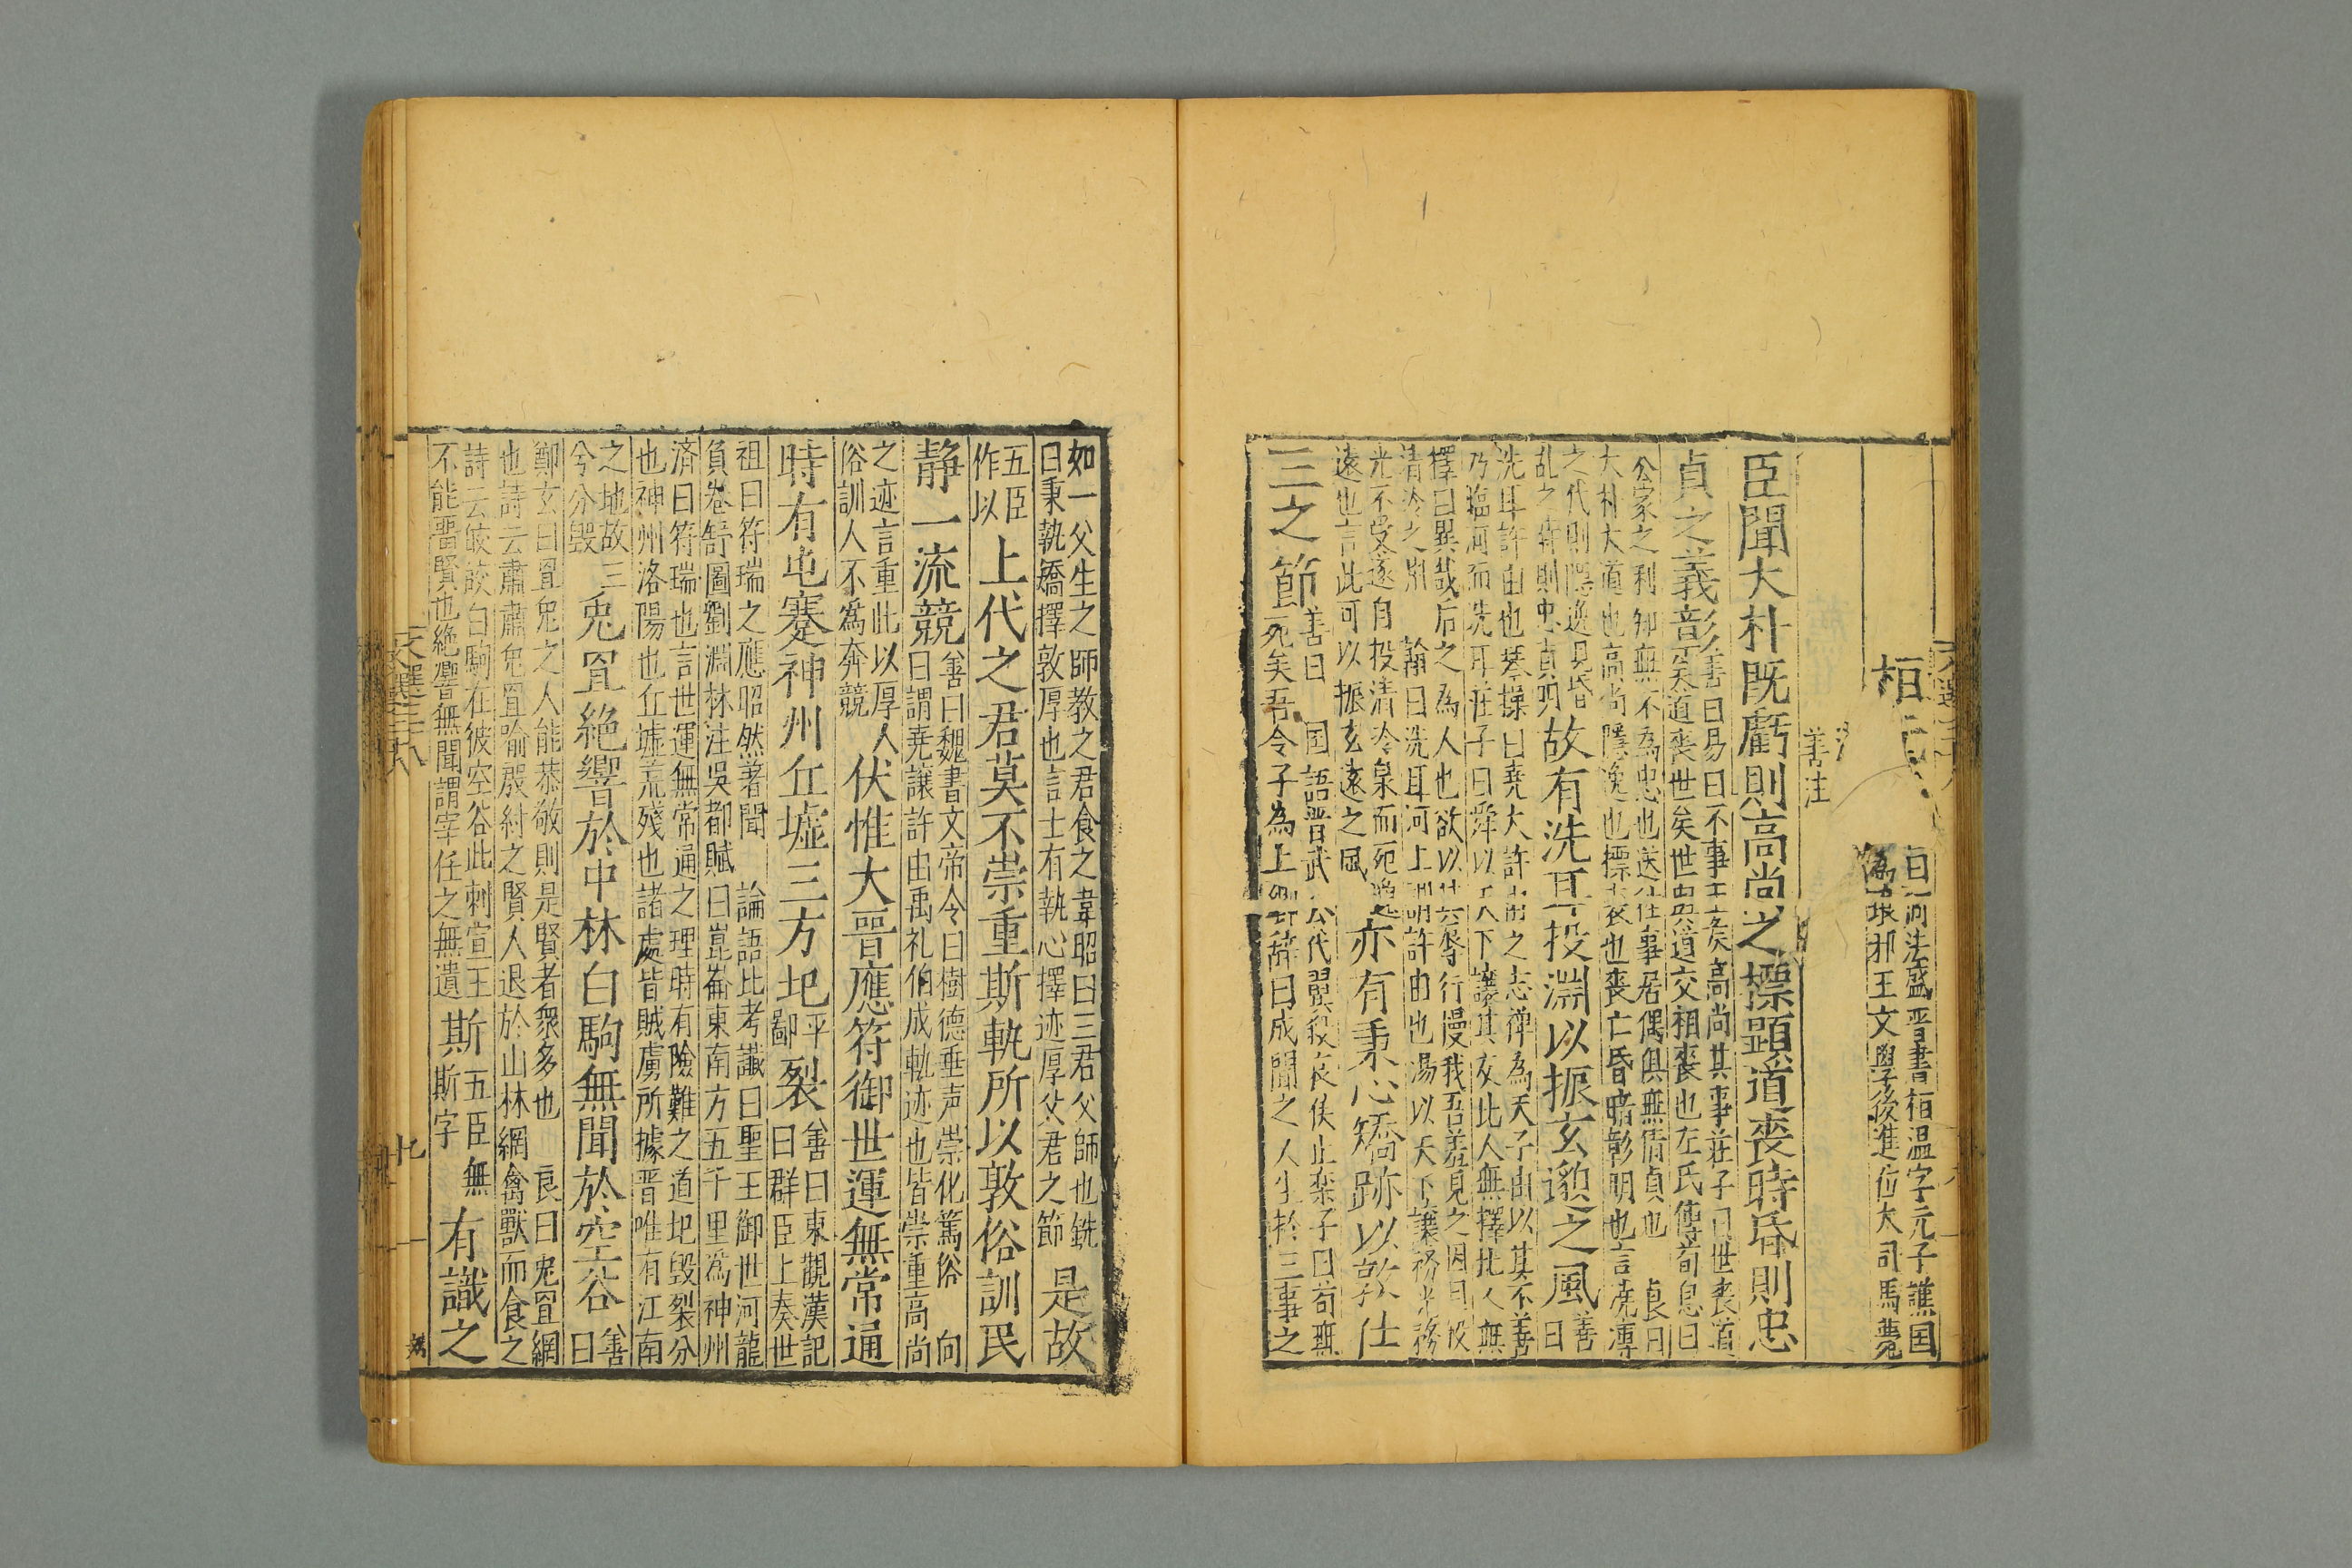 桓
曰何法盛晋書桓温字元子譙国
為琅邪王文學後進位大司馬薨
善注
臣聞大朴既虧則高尚之摽顯道喪時昏則忠
貞之義彰善曰易曰不事王侯高尚其事莊子曰世喪道
矣道喪世矣世與道交相喪也左氏傳荀息曰
公家之利知無不為忠也送往事居偶俱無猜貞也 良曰
大朴大道也高尚隱逸也摽表也喪亡昏暗彰明也言澆薄
之代則隱逸見昏
乱之時則忠貞明故有洗耳投淵以振玄邈之風善曰
洗耳許由也琴操曰堯大許由之志禪為天子由以其不善
乃臨河而洗耳莊子曰舜以天下讓其友北人無擇北人無
擇曰異哉后之為人也欲以其辱行慢我吾羞見之因自投
清泠之淵 翰曰洗耳河上謂許由也湯以天下讓務光務
光不受遂自投清泠泉而死
遠也言此可以振玄遠之風亦有秉心矯跡以敦在
三之節善曰国語晋武公代翼殺哀侯止欒子曰苟無
死矣吾令子為上卿辭曰成聞之人生於三事之
如一父生之師教之君食之韋昭曰三君父師也銑
曰秉執矯擇敦厚也言士有執心擇迹厚父君之節是故
五臣
作以上代之君莫不崇重斯軌所以敦俗訓民
靜一流競善曰魏書文帝令曰樹德垂声崇化篤俗 向
曰謂堯讓許由禹礼伯成軌迹也皆崇重高尚
之迹言重此以厚人
俗訓人不為奔競伏惟大晉應符御世運無常通
時有屯蹇神州丘墟三方圮平鄙裂善曰東觀漢記
曰群臣上奏世
祖曰符瑞之應昭然著聞 論語比考讖曰聖王御世河龍
負卷舒圖劉淵林注吳都賦曰崑崙東南方五千里為神州
済曰符瑞也言世運無常通之理時有險難之道圮毁裂分
也神州洛陽也丘墟荒殘也諸處皆賊虜所據晋唯有江南
之地故三
兮分毁兎罝絶響於中林白駒無聞於空谷善曰
鄭玄曰罝兎之人能恭敬則是賢者衆多也 良曰兎罝網
也詩云肅肅兎罝喻殷紂之賢人退於山林網禽獸而食之
詩云皎皎白駒在彼空谷此刺宣王
不能畱賢也絶響無聞謂宰任之無遺斯五臣無
斯字有識之
文選三十八